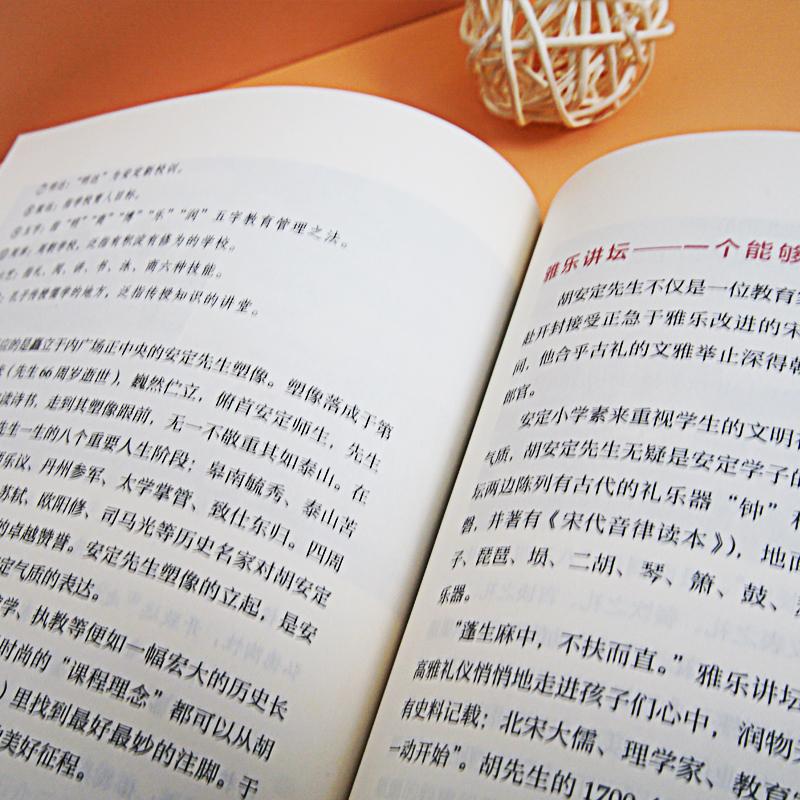 “明达”为安定新校训。
指学校育人目标。
指“明”“爽”“博”“乐”“润”五字教育管理之法。
泛指有积淀有修为的学校。
指礼、阅、讲、书、泳、商六种技能。
孔子传授儒学的地方，泛指传授知识的讲堂。
应的是矗立于内广场正中央的安定先生塑像。塑像落成于第
（先生66周岁逝世），巍然伫立，俯首安定师生，先生
读诗书，走到其塑像跟前，无一不敬重其如泰山。在
先生一生的八个重要人生阶段：皋南毓秀、泰山苦
乐议、丹州参军、太学掌管、致仕东归。四周
苏轼、欧阳修、司马光等历史名家对胡安定
的卓越赞誉。安定先生塑像的立起，是安
定气质的表达。
学、执教等便如一幅宏大的历史长
时尚的“课程理念”都可以从胡
）里找到最好最妙的注脚。于
美好征程。
雅乐讲坛——一个能够
胡安定先生不仅是一位教育
赴开封接受正急于雅乐改进的宋
间，他合乎古礼的文雅举止深得朝
郎官。
安定小学素来重视学生的文明
气质，胡安定先生无疑是安定学子的
坛两边陈列有古代的礼乐器“钟”和
磬，并著有《宋代音律读本》），地面
子、琵琶、埙、二胡、琴、箫、鼓、
乐器。
“蓬生麻中，不扶而直。”雅乐讲坛
高雅礼仪悄悄地走进孩子们心中，润物无
有史料记载：北宋大儒、理学家、教育家
一动开始”。胡先生的1700